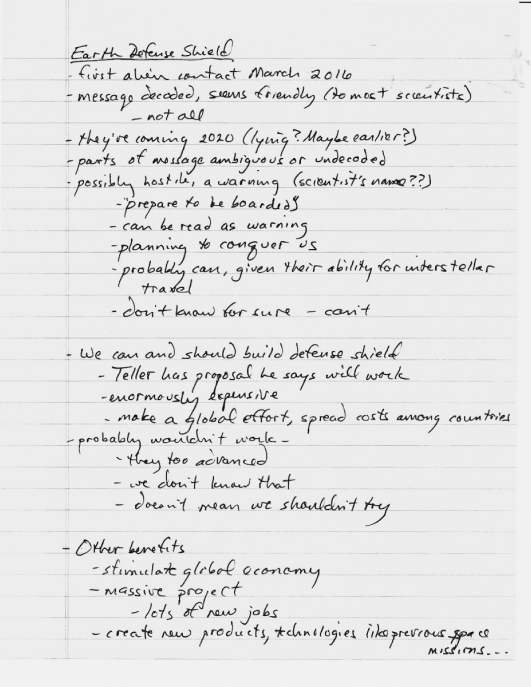 Earth Defense Shield
- first alien contact March 2016
- message decoded, seems friendly (to most scientists)
- not all
- they're coming 2020 (lying? Maybe earlier?)
- parts of message ambiguous or undecoded
- possibly hostile, a warning (scientist's name??)
- "prepare to be boarded"
- can be read as warning
- planning to conquer us
- probably can, given their ability for interstellar
travel
- don't know for sure - can't
- We can and should build defense shield
- Teller has proposal he says will work
- enormously expensive
- make a global effort, spread costs among countries
- probably wouldn't work -
- they too advanced
- we don't know that
- doesn't mean we shouldn't try
- Other benefits
- stimulate global economy
- massive project
- lots of new jobs
- create new products, technologies like previous space
missions...